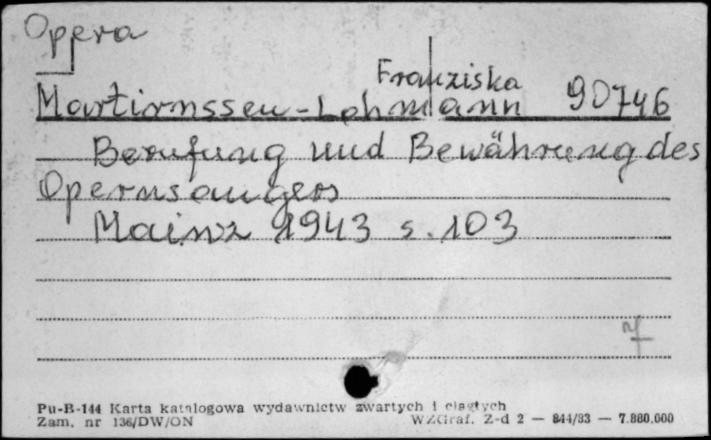 Opera
Franziska
Martirnssen-Lehmann 90746
Berufung und Bewährung des
Opernsangers
Mainz 1943 s. 103
7
Pu-B-144 Karta katalogowa wydawnictw zwartych i ciągłych
Zam. nr 136/DW/ON WZGraf. Z-d 2 — 844/83 — 7.880.000